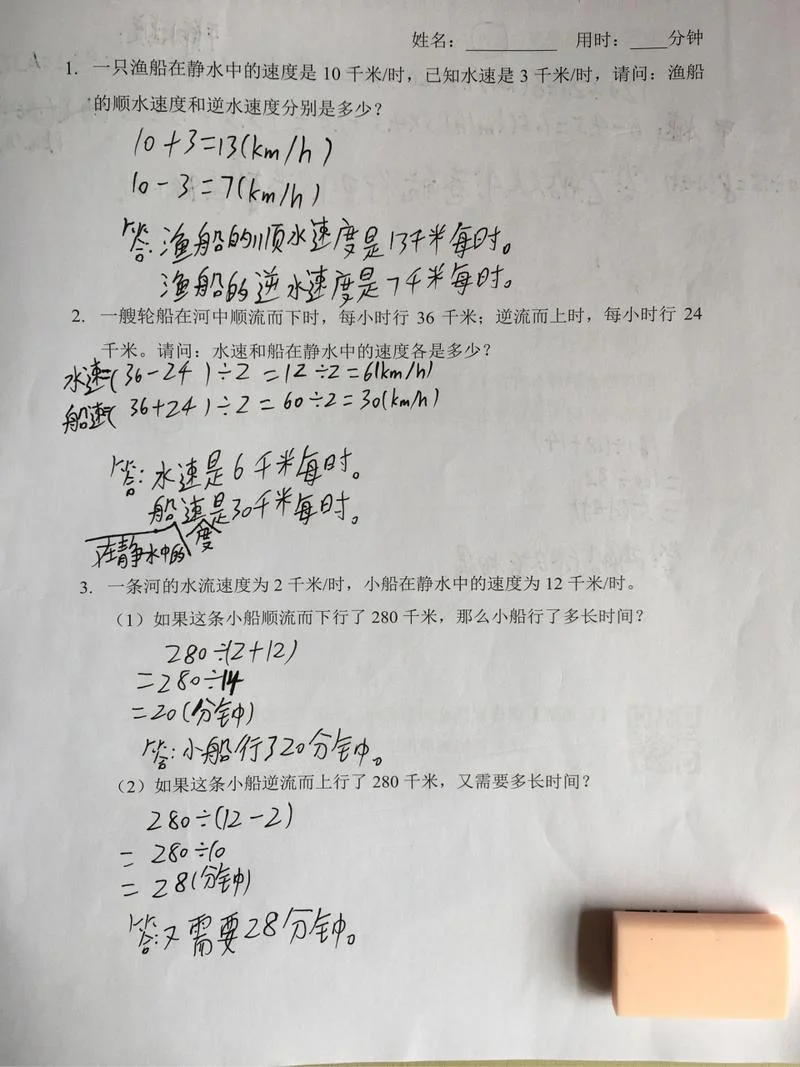 姓名：________ 用时：____分钟
1. 一只渔船在静水中的速度是 10 千米/时，已知水速是 3 千米/时，请问：渔船
的顺水速度和逆水速度分别是多少？
10+3=13(km/h)
10-3=7(km/h)
答：渔船的顺水速度是13千米每时。
渔船的逆水速度是7千米每时。
2. 一艘轮船在河中顺流而下时，每小时行 36 千米；逆流而上时，每小时行 24
千米。请问：水速和船在静水中的速度各是多少？
水速=(36-24)÷2=12÷2=6(km/h)
船速=(36+24)÷2=60÷2=30(km/h)
答：水速是6千米每时。
船速是30千米每时。
在静水中的 度
3. 一条河的水流速度为 2 千米/时，小船在静水中的速度为 12 千米/时。
（1）如果这条小船顺流而下行了 280 千米，那么小船行了多长时间？
280÷(2+12)
=280÷14
=20(分钟)
答：小船行了20分钟。
（2）如果这条小船逆流而上行了 280 千米，又需要多长时间？
280÷(12-2)
=280÷10
=28(分钟)
答：又需要28分钟。